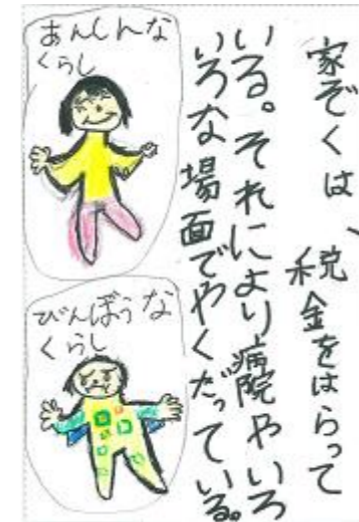 家ぞくは、税金をはらって
いる。それにより病院やいろ
いろな場面でやくだっている。
あんしんな
くらし
びんぼうな
くらし